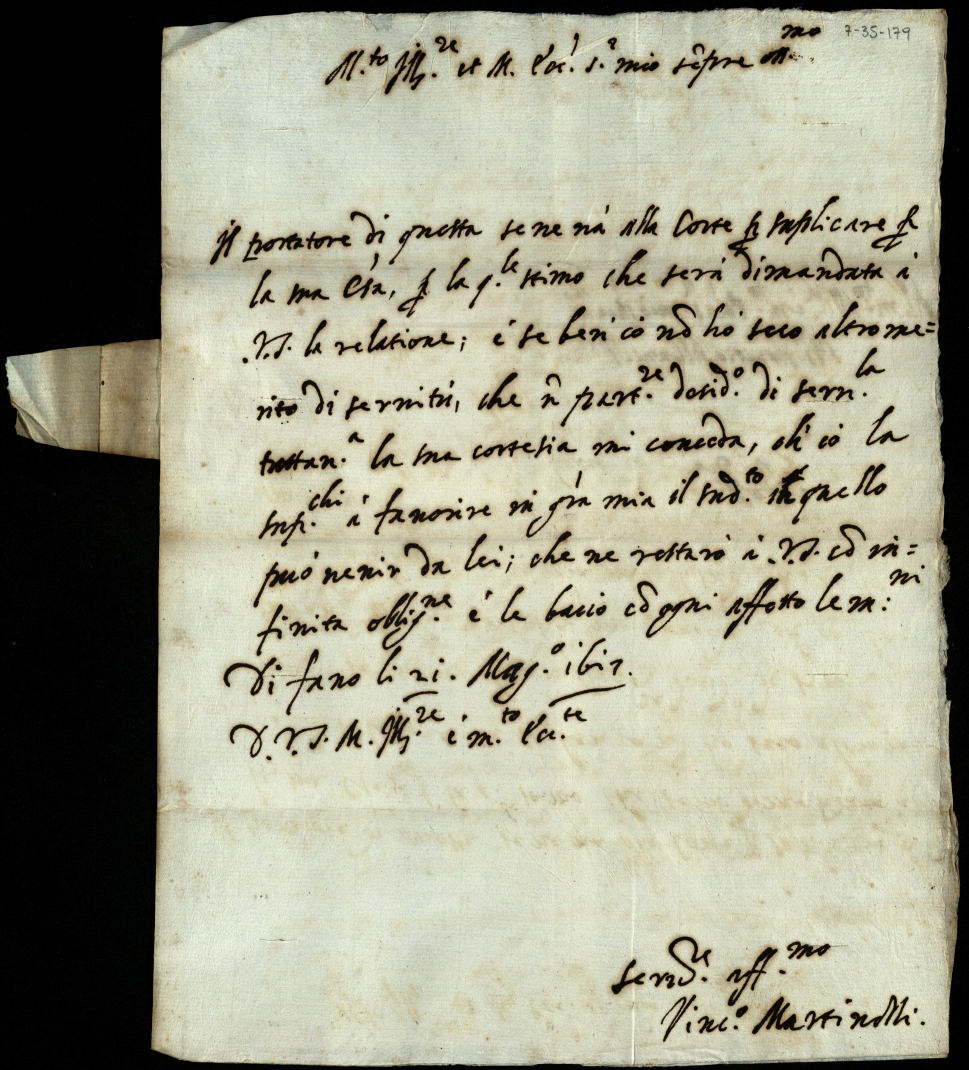 7-35-179
M.to Ill.re et M. Ecc.e S.r mio sẽpre oss.mo
Il portatore di questa se ne uà alla Corte ꝑ suplicare ꝑ
la sua Cãa, ꝑ la q.le stimo che serà dimandata à
.V.S. la relatione; è se beñ io nõ hò seco altro me=
rito di seruitù, che ñ part.re desid.o di seru.la
tuttau.a la sua cortesia mi conceda, ch' io la
sup.chi à fauorire in gr̃a mia il sud.to in quello
può uenir da lei; che ne restarò à .V.S. cõ in=
finita oblig.ne è le bacio cõ ogni affetto le m:ni
Di fano li 21. Mag.o 1617.
D. V.S. M. Ill.re è m.to Ecc.te
Ser.re aff.mo
Vinc.o Martinelli.